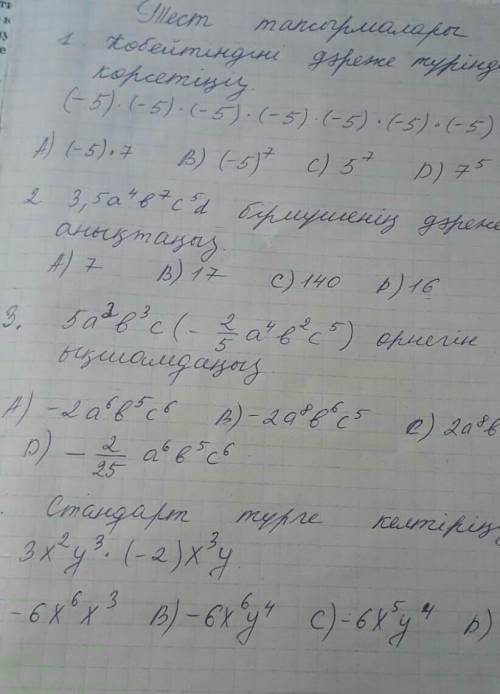 Тест тапсырмалары
1. Көбейтіндіні дәреже түрінде
көрсетіңіз.
(-5)·(-5)·(-5)·(-5)·(-5)·(-5)·(-5)
A) (-5)·7 B) (-5)⁷ C) 5⁷ D) 7⁵
2. 3,5a⁴b⁷c⁵d бірмүшенің дәреже
анықтаңыз.
A) 7 B) 17 C) 140 D) 16
3. 5a²b³c(-2/5 a⁴b²c⁵) өрнегін
ықшамдаңыз.
A) -2a⁶b⁵c⁶ B) -2a⁸b⁶c⁵ C) 2a⁸b
D) -2/25 a⁶b⁵c⁶
Стандарт түрге келтіріңіз
3x²y³·(-2)x³y
-6x⁶x³ B) -6x⁶y⁴ C) -6x⁵y⁴ D)